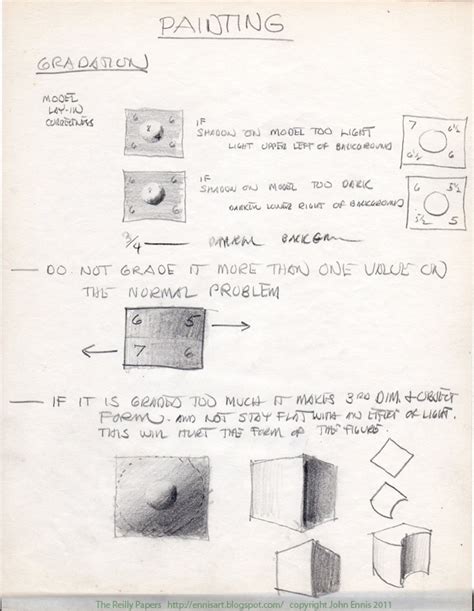 PAINTING
GRADATION
MODEL
LAY-IN
CORRECTNESS
6 6
6 6
IF
SHADOW ON MODEL TOO LIGHT
LIGHT UPPER LEFT OF BACKGROUND
7 6½
6½ 6
6 6
6 6
IF
SHADOW ON MODEL TOO DARK
DARKEN LOWER RIGHT OF BACKGROUND
6 5½
5½ 5
3/4 DARKER BACKGR
— DO NOT GRADE IT MORE THAN ONE VALUE ON
THE NORMAL PROBLEM
6 5
7 6
— IF IT IS GRADED TOO MUCH IT MAKES 3RD DIM. & OBJECT
FORM - AND NOT STAY FLAT WITH AN EFFECT OF LIGHT.
THIS WILL HURT THE FORM OF THE FIGURE.
The Reilly Papers http://ennisart.blogspot.com/ copyright John Ennis 2011